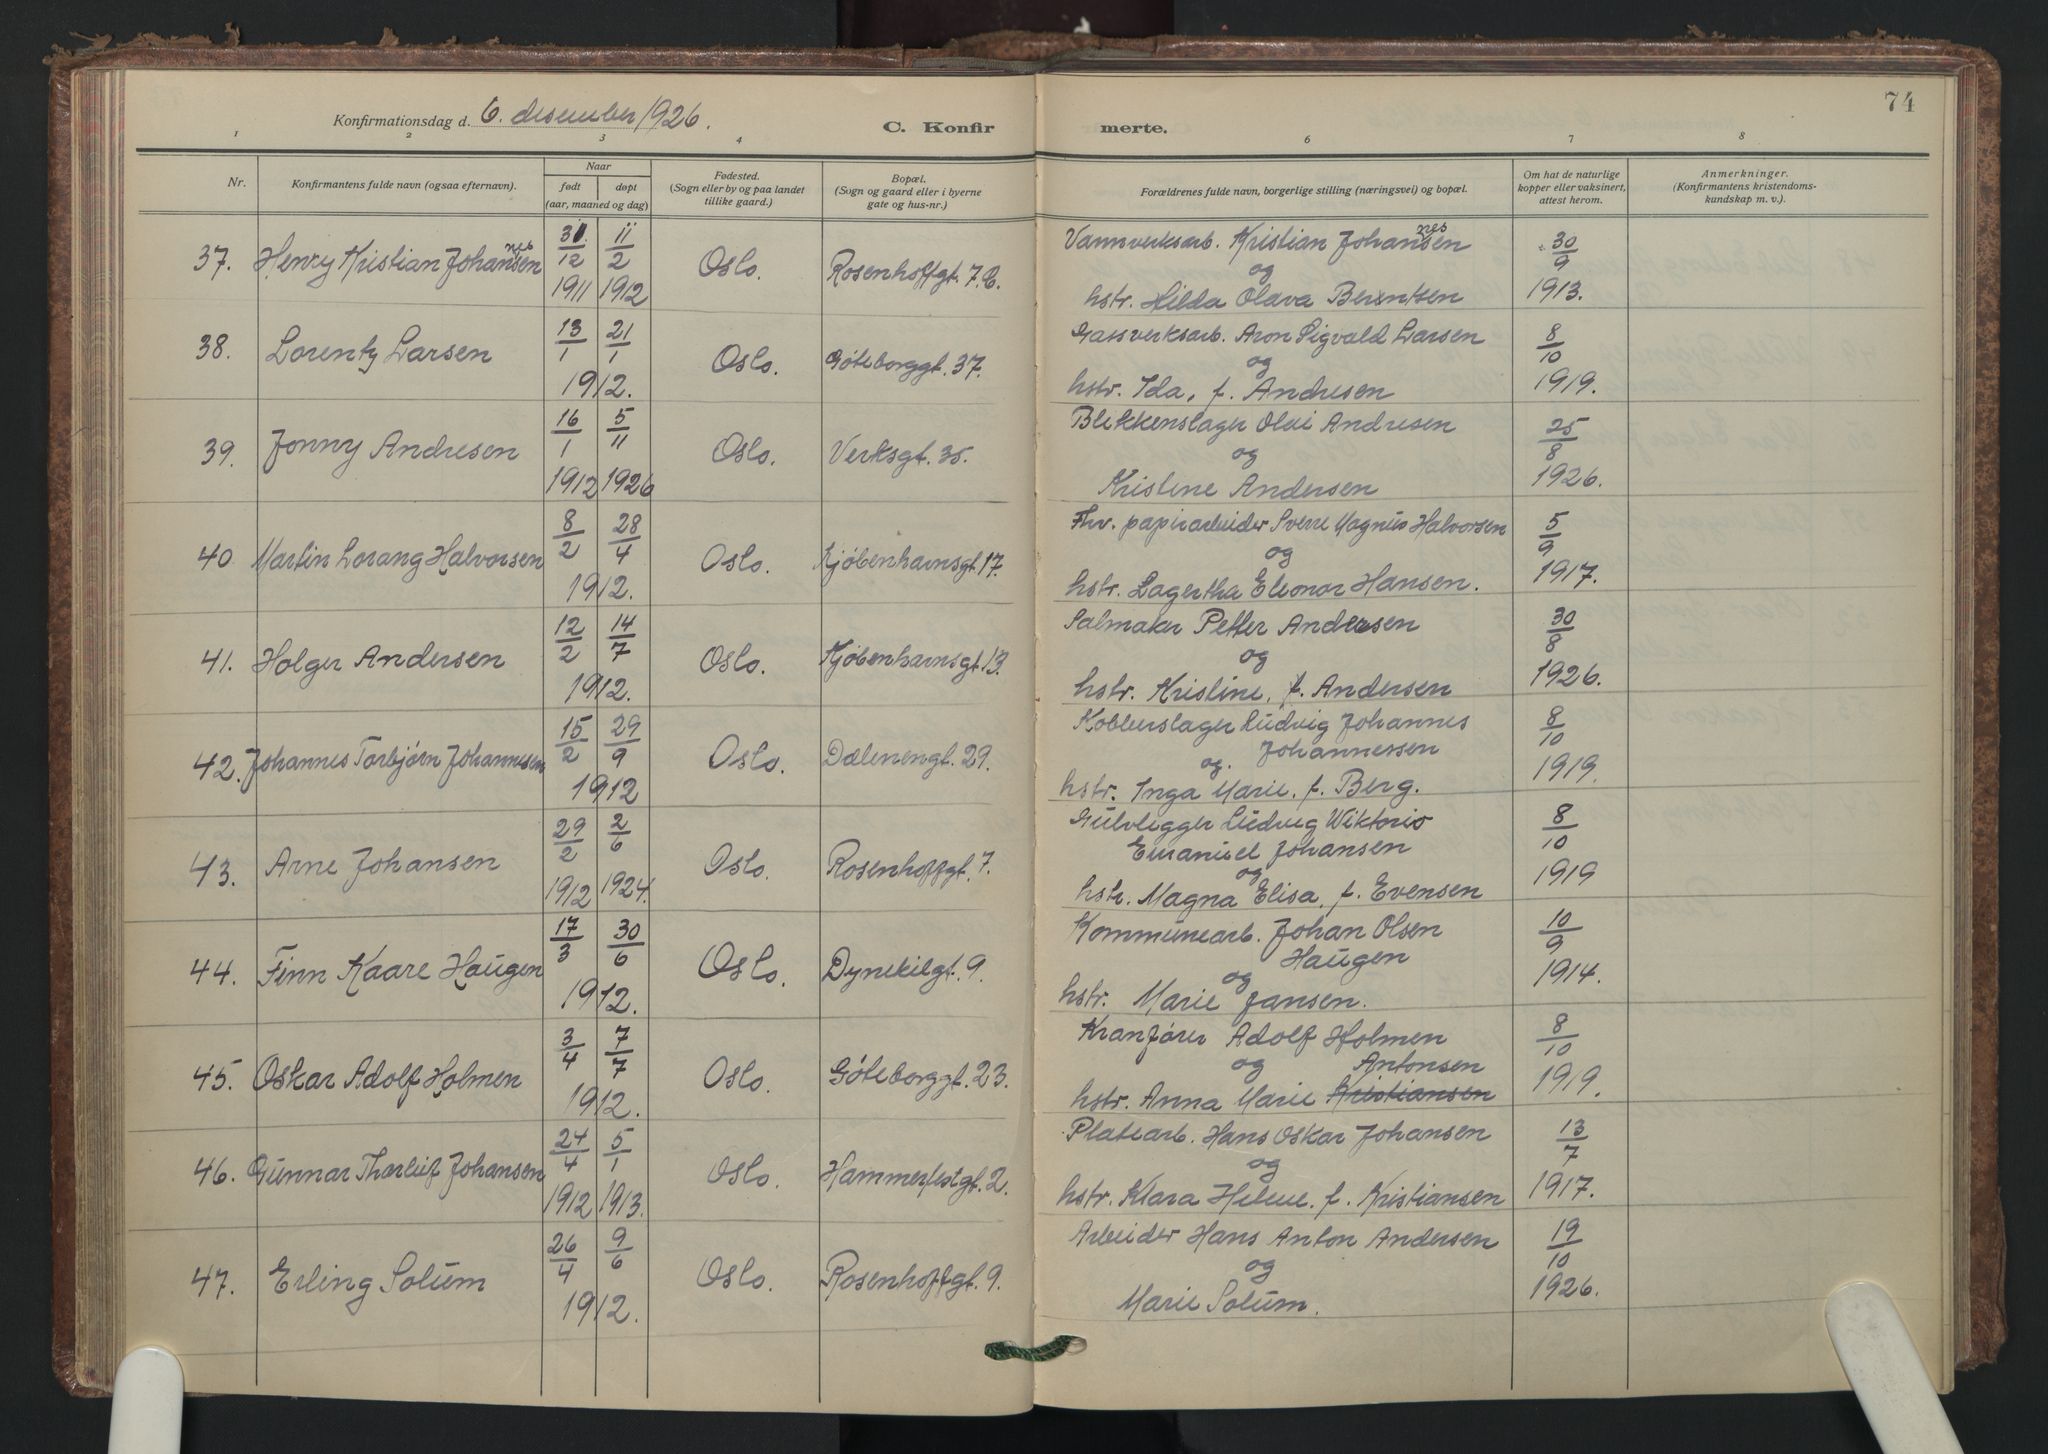 74
Konfirmationsdag d. 6. desember 1926.
C. Konfir merte.
1 2 3 4 6 7 8
Nr.
Konfirmantens fulde navn (ogsaa efternavn).
Naar
født døpt
(aar, maaned og dag)
Fødested.
(Sogn eller by og paa landet
tillike gaard.)
Bopæl.
(Sogn og gaard eller i byerne
gate og hus-nr.)
Forældrenes fulde navn, borgerlige stilling (næringsvei) og bopæl.
Om hat de naturlige
kopper eller vaksinert,
attest herom.
Anmerkninger.
(Konfirmantens kristendoms-
kundskap m. v.).
nes nes
37. Henry Kristian Johansen 31/12 1911 11/2 1912 Oslo. Rosenhoffgt. 7.b. Vannverksarb. Kristian Johansen 30/9 1913.
og
hstr. Hilda Olava Berentsen
38. Lorentz Larsen 13/1 21/1 1912. Oslo. Gøteborggt. 37. Gassverksarb. Aron Sigvald Larsen 8/10 1919.
og
hstr. Ida, f. Andresen
39. Jonny Andresen 16/1 1912 5/11 1926 Oslo. Verksgt. 35. Blikkenslager Olai Andresen 25/8 1926.
og
Kristine Andersen
40 Martin Lorang Halvorsen 8/2 28/4 1912. Oslo. Kjøbenhavnsgt. 17. Fhv. papirarbeider Sverre Magnus Halvorsen 5/9 1917.
og
hstr. Lagertha Eleonor Hansen.
41. Holger Andersen 12/2 14/7 1912. Oslo. Kjøbenhavnsgt. 13. Salmaker Petter Andersen 30/8 1926.
og
hstr. Kristine, f. Andersen
42. Johannes Torbjørn Johannesen 15/2 29/9 1912 Oslo. Dælenengt. 29. Kobberslager Ludvig Johannes 8/10 1919.
og. Johannessen
hstr. Inga Marie, f. Berg.
43. Arne Johansen 29/2 1912 2/6 1924. Oslo. Rosenhoffgt. 7. Gulvlegger Ludvig Wiktorio 8/10 1919
Emanuel Johansen
og
hstr. Magna Elisa, f. Evensen
44. Finn Kaare Haugen 17/3 30/6 1912. Oslo. Dynekilgt. 9. Kommunearb. Johan Olsen 10/9 1914.
Haugen
og
hstr. Marie Jansen.
45. Oskar Adolf Holmen 3/4 7/7 1912. Oslo. Gøteborggt. 23. Kranfører Adolf Holmen 8/10 1919.
og Antonsen
hstr. Anna Marie Kristiansen
46. Gunnar Thorleif Johansen 24/4 1912 5/1 1913. Oslo. Hammerfestgt. 2. Platearb. Hans Oskar Johansen 13/7 1917.
og
hstr. Klara Helene. f. Kristiansen
47. Erling Solum 26/4 9/6 1912. Oslo. Rosenhoffgt. 9. Arbeider Hans Anton Andersen 19/10 1926.
og
Marie Solum.